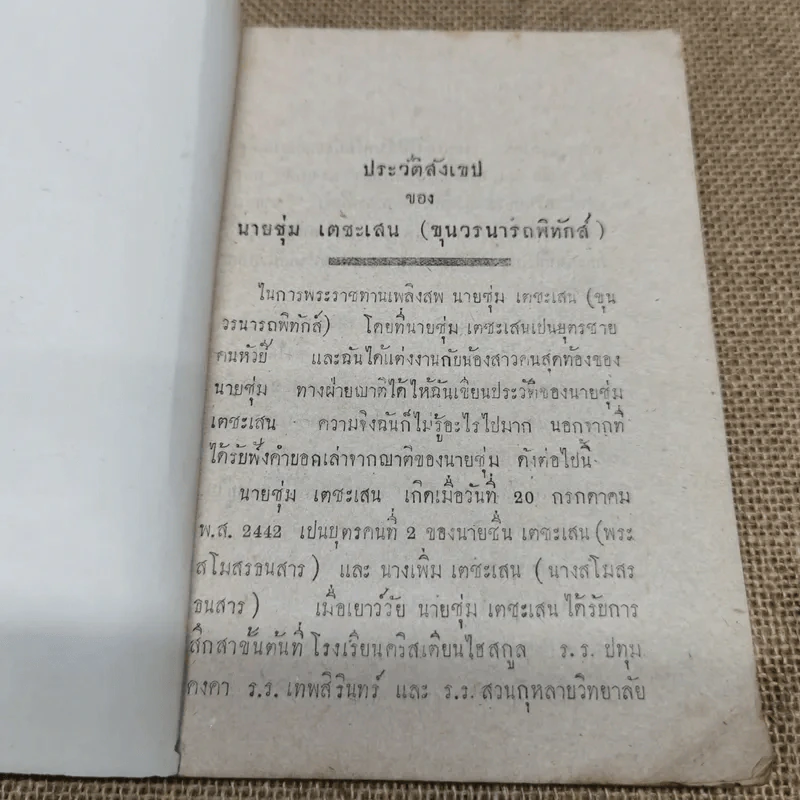 ประวัติสังเขป
ของ
นายชุ่ม เตชะเสน (ขุนวรนารถพิทักส์)
ในการพระราชทานเพลิงสพ นายชุ่ม เตชะเสน (ขุน
วรนารถพิทักส์) โดยที่นายชุ่ม เตชะเสนเปนบุตรชาย
คนหัวปี และฉันได้แต่งงานกับน้องสาวคนสุดท้องของ
นายชุ่ม ทางฝ่ายญาติได้ไห้ฉันเขียนประวัติของนายชุ่ม
เตชะเสน ความจิงฉันก็ไม่รู้อะไรไปมาก นอกจากที่
ได้รับฟังคำบอกเล่าจากญาติของนายชุ่ม ดังต่อไปนี้
นายชุ่ม เตชะเสน เกิดเมื่อวันที่ 20 กรกดาคม
พ.ส. 2442 เปนบุตรคนที่ 2 ของนายชื่น เตชะเสน (พระ
สโมสรธนสาร) และ นางเพิ่ม เตชะเสน (นางสโมสร
ธนสาร) เมื่อเยาว์วัย นายชุ่ม เตชะเสน ได้รับการ
สึกสาขั้นต้นที่ โรงเรียนคริสเตียนไฮสกูล ร.ร. ปทุม
คงคา ร.ร. เทพสิรินทร์ และ ร.ร. สวนกุหลายวิทยาลัย